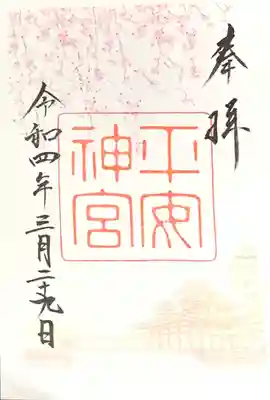 奉拝
平安
神宮
令和四年三月二十九日